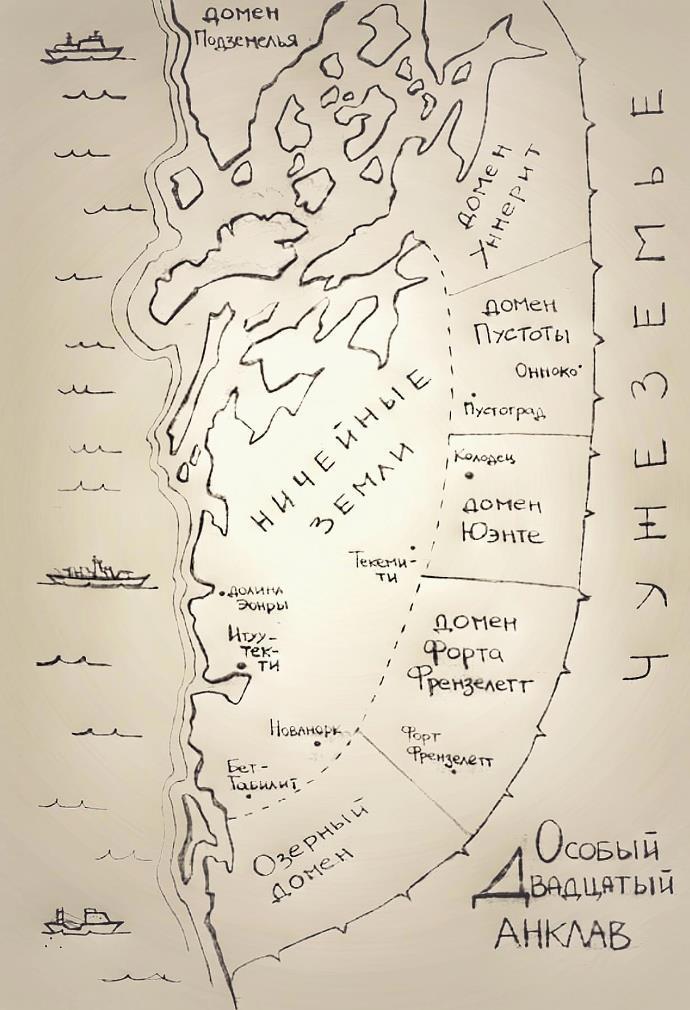 домен
Подземелья
домен
Хннерит
домен
Пустоты
Онноко
Пустоград
Колодец
домен
Юэнте
НИЧЕЙНЫЕ
ЗЕМЛИ
Текеми-
ти
долина
Эонры
Итуу-
тек-
ти
домен
Форта
Френзелетт
Новлнорк
Форт
Френзелетт
Бет-
Табилит
Озерный
домен
ЧУЖЕЗЕМЬЕ
Особый
Двадцатый
АНКЛАВ